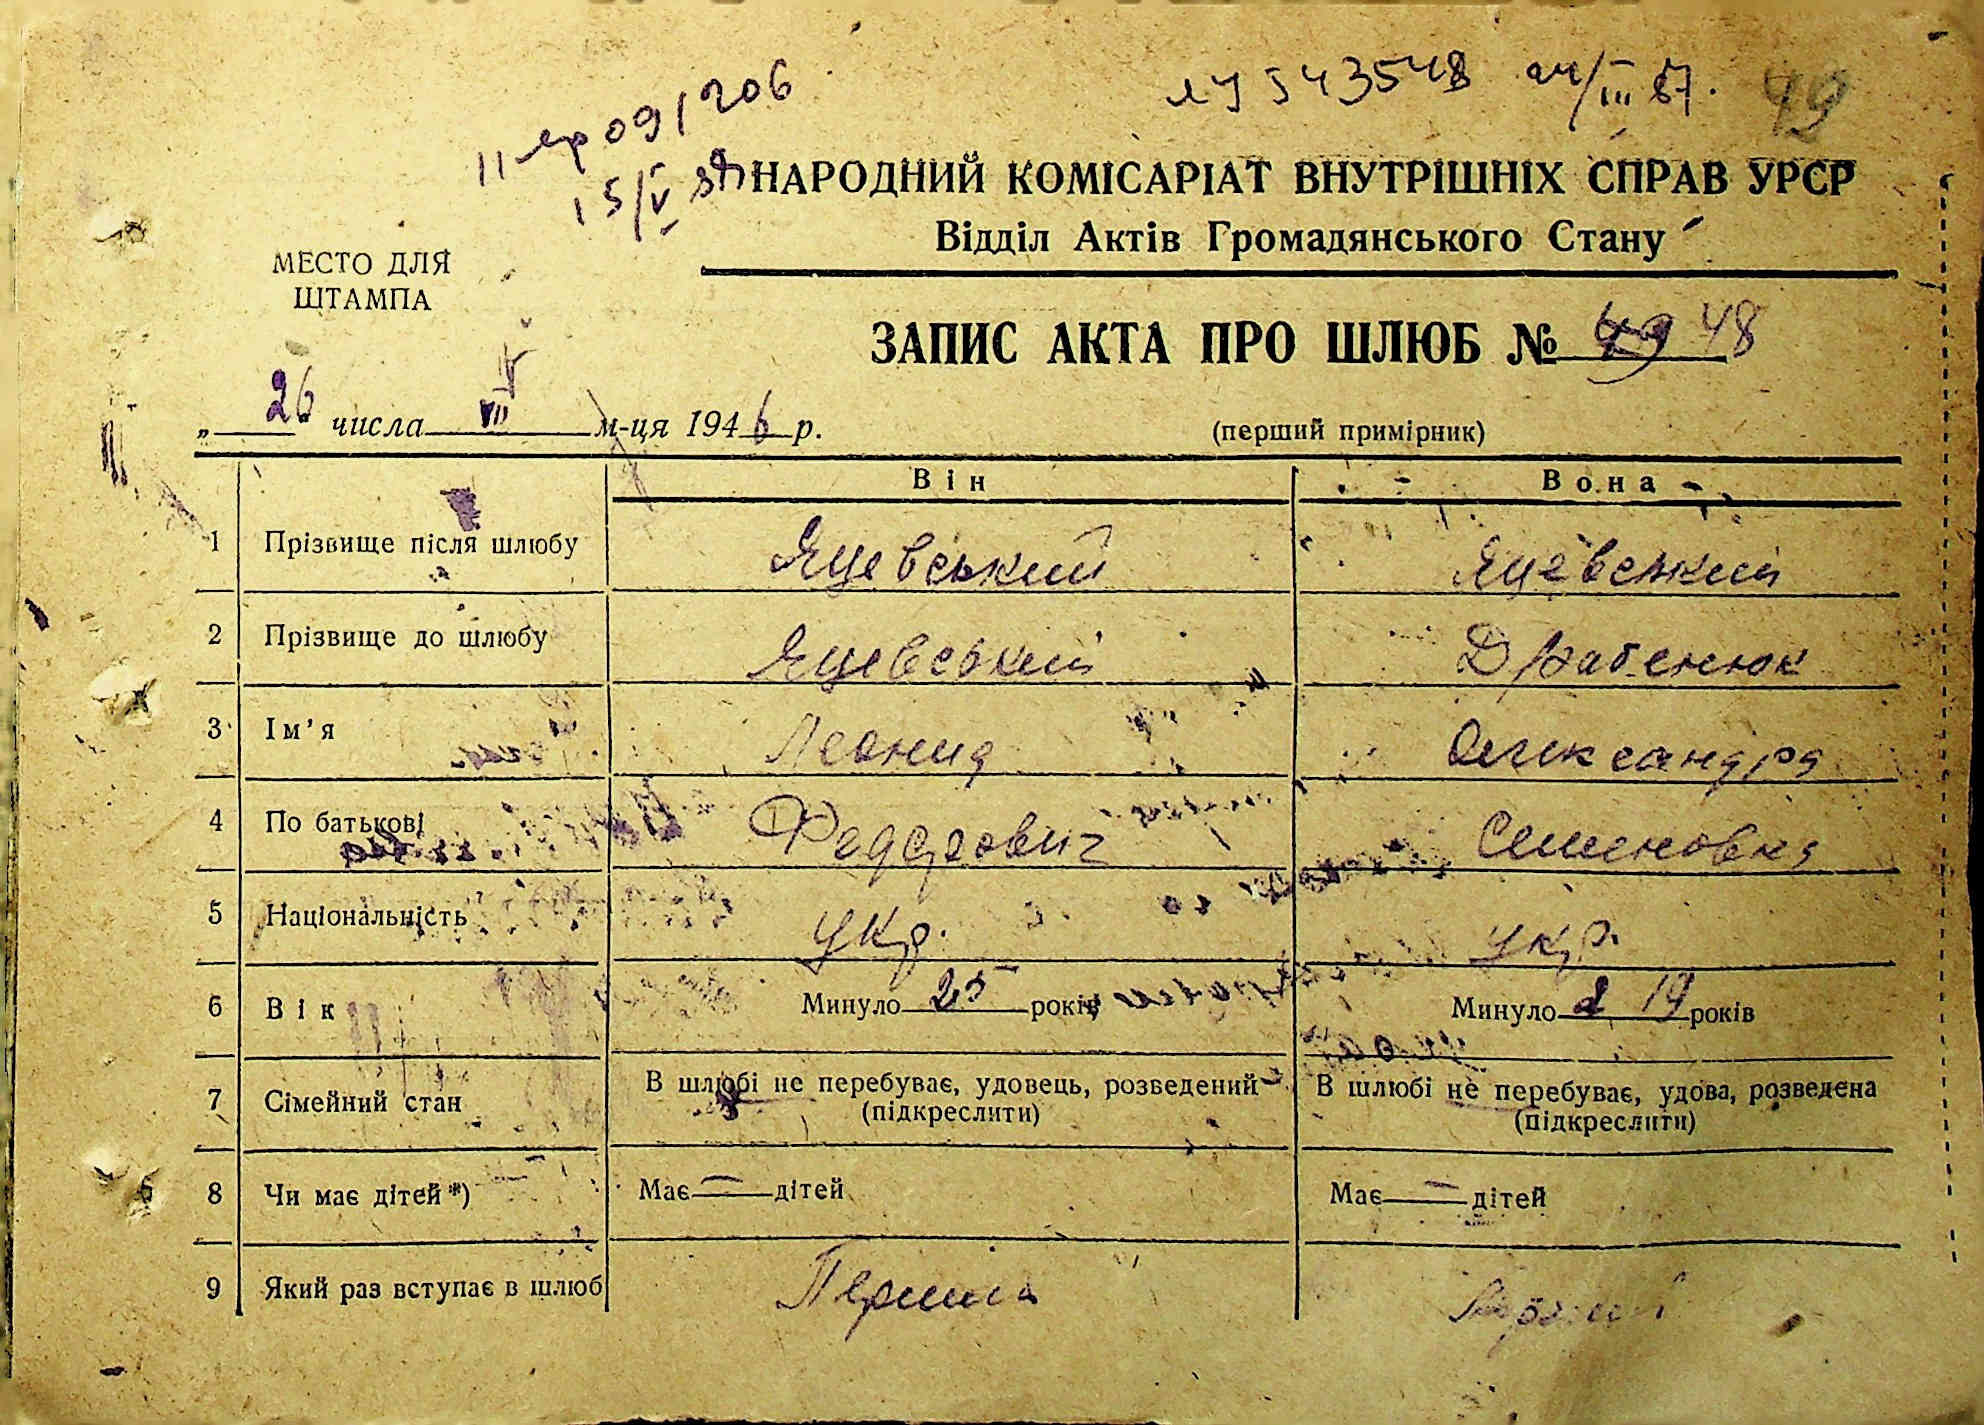 ІІ-яр 091206
ЛУ 543548 24/III 87. 49
15/V
НАРОДНИЙ КОМІСАРІАТ ВНУТРІШНІХ СПРАВ УРСР
Відділ Актів Громадянського Стану
МЕСТО ДЛЯ
ШТАМПА
ЗАПИС АКТА ПРО ШЛЮБ № 49 48
„26" числа VII м-ця 1946 р.
(перший примірник)
Він Вона
1 Прізвище після шлюбу Яцевський Яцевський
2 Прізвище до шлюбу Яцевський Драбенюк
3 Ім'я Леонид Олександра
4 По батькові Федорович Семеновна
5 Національність укр. укр.
6 Вік Минуло 25 років Минуло 2 19 років
7 Сімейний стан В шлюбі не перебуває, удовець, розведений (підкреслити) В шлюбі не перебуває, удова, розведена (підкреслити)
8 Чи має дітей*) Має — дітей Має — дітей
9 Який раз вступає в шлюб Перший